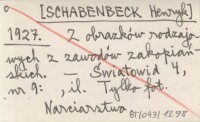 [SCHABENBECK Henryk]
1927. Z obrazków rodzajo-
wych z zawodów zakopiań-
skich. — Światowid 4,
nr 9: , il. Tylko fot.
Narciarstwo
BT(049) 1298